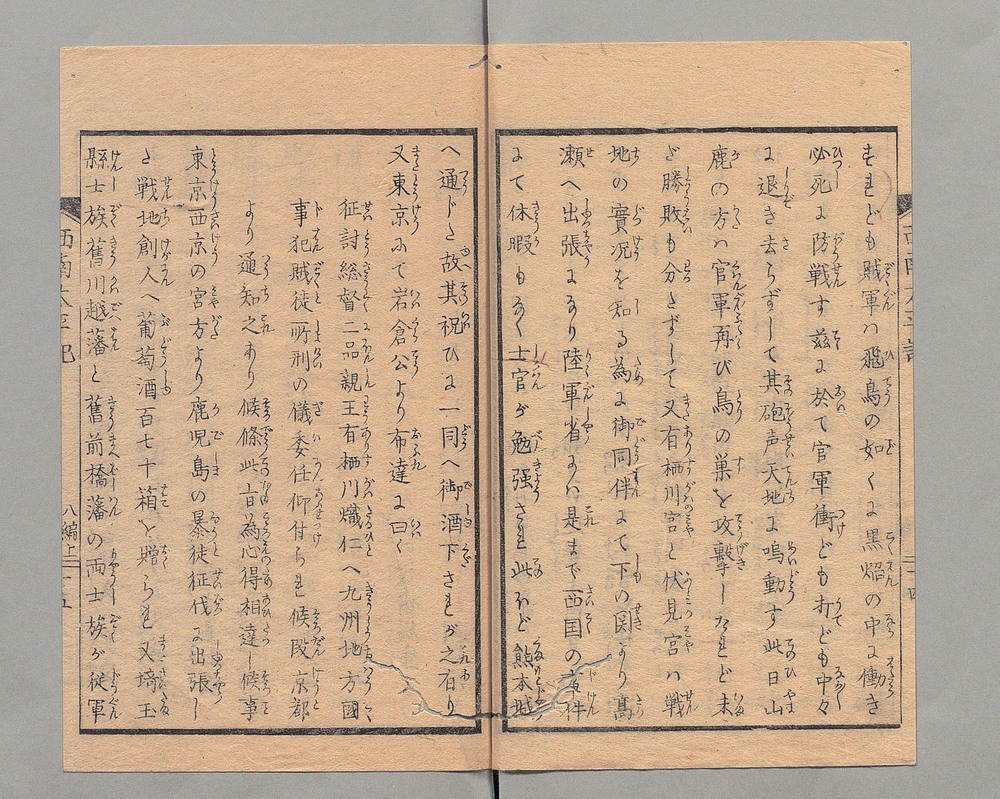 されども賊軍ハ飛鳥の如くに黒焔の中に働き
必死に防戦す茲に於て官軍衝ども打ども中々
に退き去らずして其砲声天地に鳴動す此日山
鹿の方ハ官軍再び鳥の巣を攻撃したれど未
だ勝敗も分たずして又有栖川宮と伏見宮ハ戦
地の實况を知る為に御同伴にて下の関より髙
瀬へ出張になり陸軍省よハ是まで西国の事件
にて休暇もなく士官が勉强され此ほど熊本城
へ通じた故其祝ひに一同へ御酒下されが之
又東京にて岩倉公より布達に曰く
征討総督二品親王有栖川熾仁へ九州地方國
事犯賊徒所刑の儀委任仰付られ候段京都
より通知之あり候條此旨為心得相達し候事
東京西京の宮方より鹿児島の暴徒征伐に出張し
た戦地創人へ葡萄酒百七十箱を贈られ又埼玉
縣士族舊川越藩と舊前橋藩の両士族が従軍
八編上